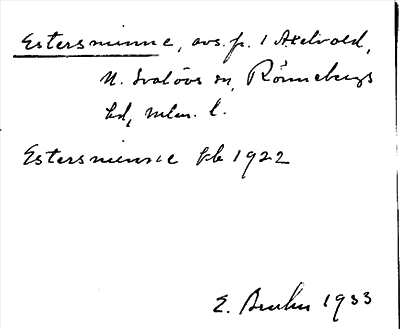 Estersminne, avs. fr. 1 Axelvold,
N. Svalövs sn, Rönnebergs
hd, Mlm. l.
Estersminne kb 1922
E. Bruhn 1933